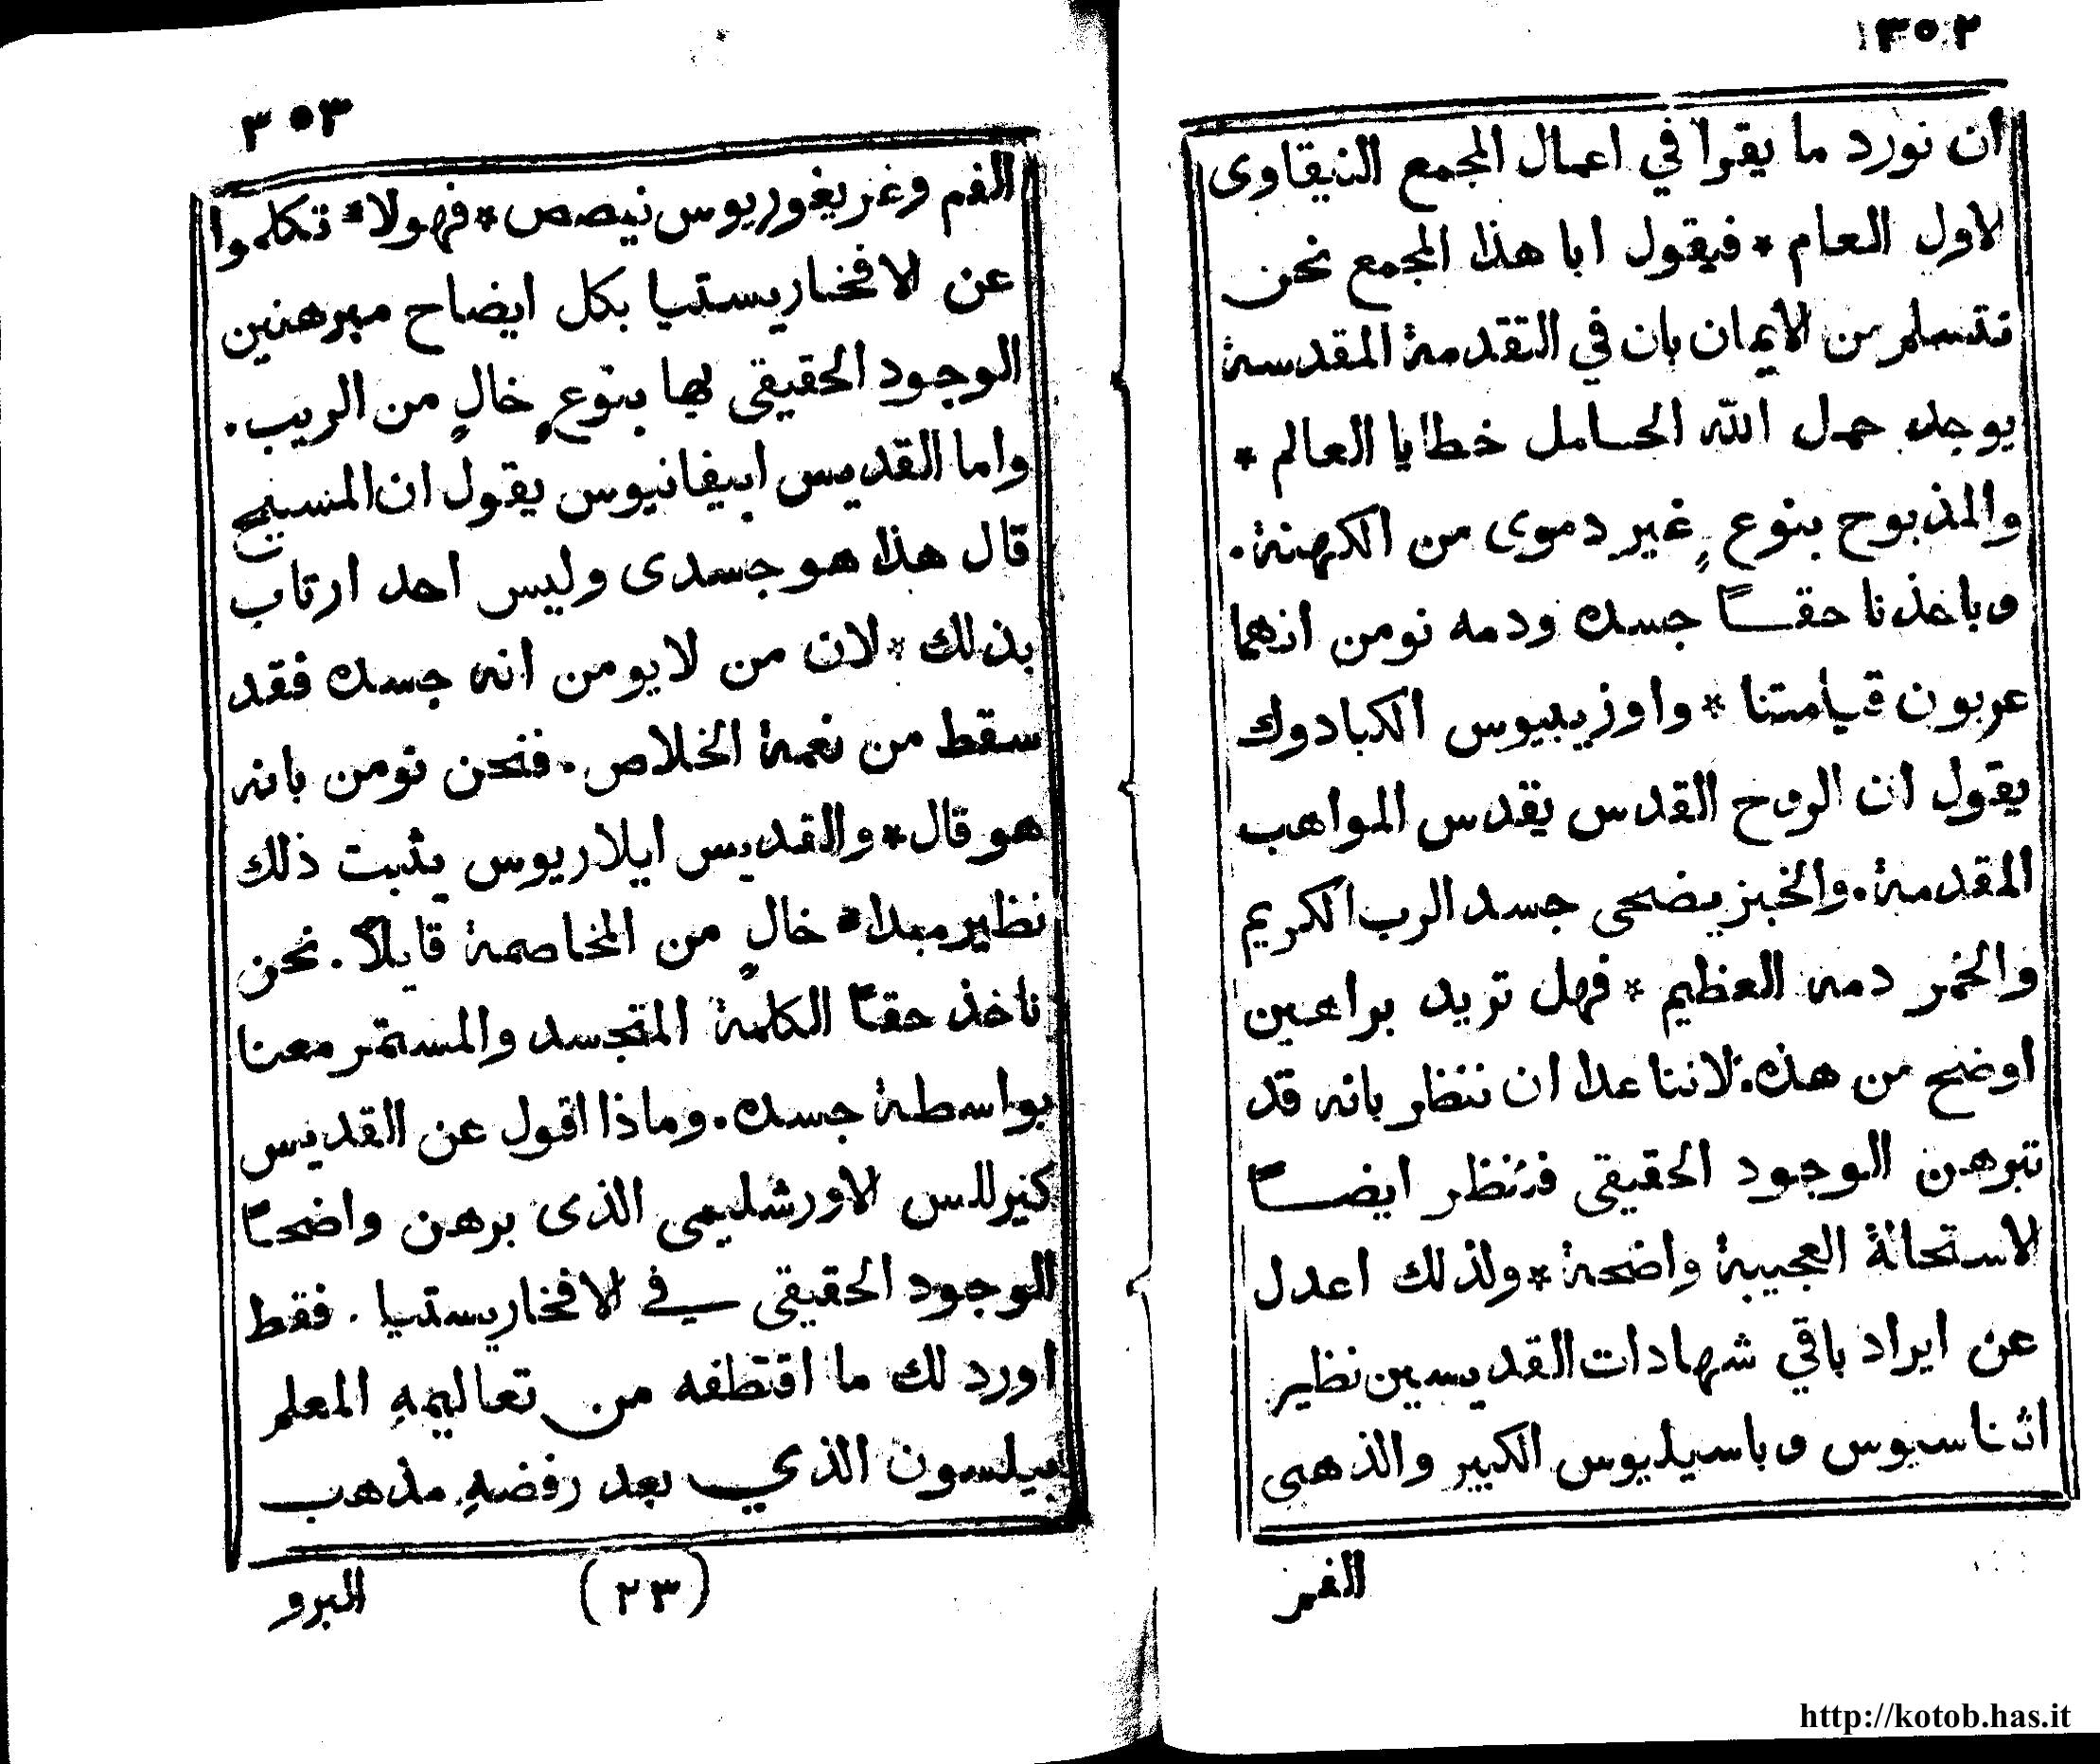 ٣٥٢
ان نورد ما يقرا في اعمال المجمع النيقاوى
لاول العام * فيقول ابا هذا المجمع نحن
نتسلم من الايمان بان في التقدمة المقدسة
يوجد حمل الله الحامل خطايا العالم *
والمذبوح بنوعٍ غير دموى من الكهنة.
وباخذنا حقاً جسده ودمه نومن انهما
عربون قيامتنا * واوزيبيوس الكبادوك
يقول ان الروح القدس يقدس المواهب
المقدمة. والخبز يضحى جسد الرب الكريم
والخمر دمه العظيم * فهل تريد براهين
اوضح من هذه. لاننا عدا ان ننظر بانه قد
تبرهن الوجود الحقيقى فننظر ايضاً
لاستحالة العجيبة واضحة * ولذلك اعدل
عن ايراد باقي شهادات القديسين نظير
اثناسيوس وباسيليوس الكبير والذهبى
الفم
٣٥٣
الفم وغريغوريوس نيصص * فهولاء تكلموا
عن الافخاريستيا بكل ايضاح مبرهنين
الوجود الحقيقى بها بنوعٍ خالٍ من الريب.
واما القديس ابيفانيوس يقول ان المسيح
قال هذا هو جسدى وليس احد ارتاب
بذلك * لان من لايومن انه جسده فقد
سقط من نعمة الخلاص. فنحن نومن بانه
هو قال * والقديس ايلاريوس يثبت ذلك
نظير مبداء خالٍ من المخاصمة قايلاً. نحن
ناخذ حقاً الكلمة المتجسد والمستمر معنا
بواسطة جسده. وماذا اقول عن القديس
كيرللس الاورشليمى الذى برهن واضحاً
الوجود الحقيقى في الافخاريستيا. فقط
اورد لك ما اقتطفه من تعاليمهِ المعلم
بيلسون الذي بعد رفضهِ مذهب
(٢٣)
البرو
http://kotob.has.it